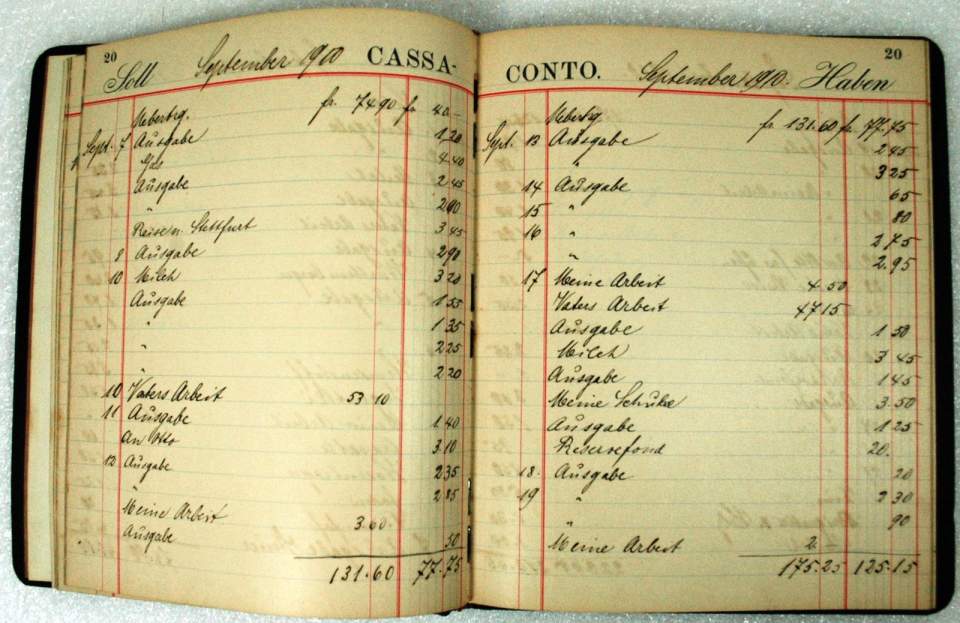 20
Soll September 1910 CASSA-
Uebertrg. fr. 74 90 fr. 40.–
Sept. 7 Ausgabe 1,20
Gas 4.40
Ausgabe 2 45
" 2 80
Reise n. Stettfurt 3 45
8 Ausgabe 2 90
10 Milch 3 20
Ausgabe 1 55
" 1 35
" 2 25
" 2 20
10 Vaters Arbeit 53 10
11 Ausgabe 1 40
An Otto 3.10
12 Ausgabe 2 35
" 2 85
Meine Arbeit 3.60
Ausgabe 30
131.60 77.75
20
CONTO. September 1910. Haben
Uebertrg. fr. 131.60 fr. 77.75
Sept. 13 Ausgabe 2 45
" 3 25
14 Ausgabe 65
15 " 80
16 " 2 75
" 2.95
17 Meine Arbeit 4.50
Vaters Arbeit 47 15
Ausgabe 1 50
Milch 3 45
Ausgabe 1 45
Meine Schuhe 3.50
Ausgabe 1 25
Reservefond 20.
18. Ausgabe 20
19 " 2 30
" 90
Meine Arbeit 2.
175.25 125.15